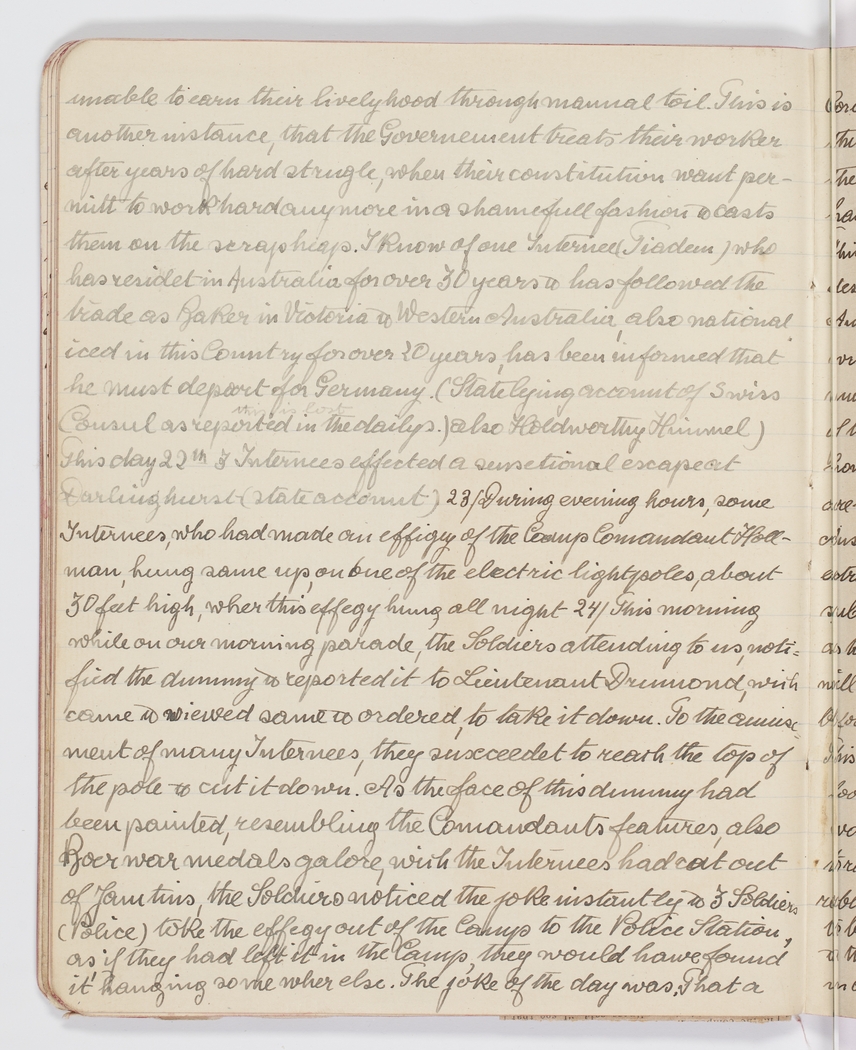 unable to earn their livelyhood through manual toil. This is
another instance, that the Governement treats their worker
after years of hard strugle, when their constitution want per-
mitt to work hard any more in a shamefull fashion & casts
them on the scrapheap. I know of one Internee (Tiadem) who
has residet in Australia for over 30 years & has followed the
trade as Baker in Victoria & Western Australia, also national
iced in this Country for over 20 years, has been informed that
he must deport for Germany. (State lying account of Swiss
this is lost
Consul as reported in the dailys.) also Holdworthy Himmel)
This day 22th 3 Internees effected a sensetional escape at
Darlinghurst (state account) 23/ During evening hours, some
Internees, who had made an effigy of the Camp Comandant Holl-
man, hung same up, on one of the electric lightpoles, about
30 feet high, wher this effegy hung all night 24/ This morning
while on our morning parade, the Soldiers attending to us, noti-
fied the dummy & reported it to Lieutenant Drumond, wich
came & wiewed same & ordered, to take it down. To the amuse-
ment of many Internees, they succeedet to reach the top of
the pole & cut it down. As the face of this dummy had
been painted, resembling the Comandants features, also
Boer war medals galore, wich the Internees had cut out
of Jam tins, the Soldiers noticed the joke instantly & 3 Soldiers
(Police) toke the effegy out of the Camp to the Police Station,
as if they had left it in the Camp, they would have found
it hanging some wher else. The joke of the day was, That a